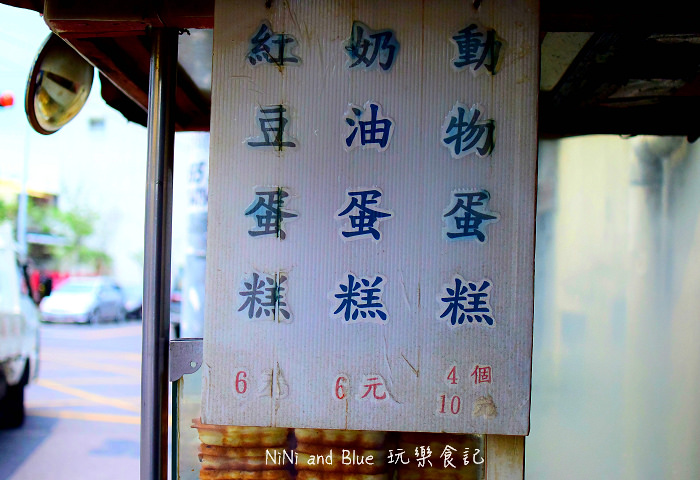 動物蛋糕
4個
10元
奶油蛋糕
6元
紅豆蛋糕
6元
NiNi and Blue 玩樂食記